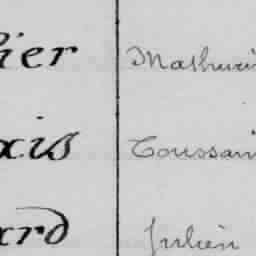 ier Mathuri
xis Toussain
ard Julien